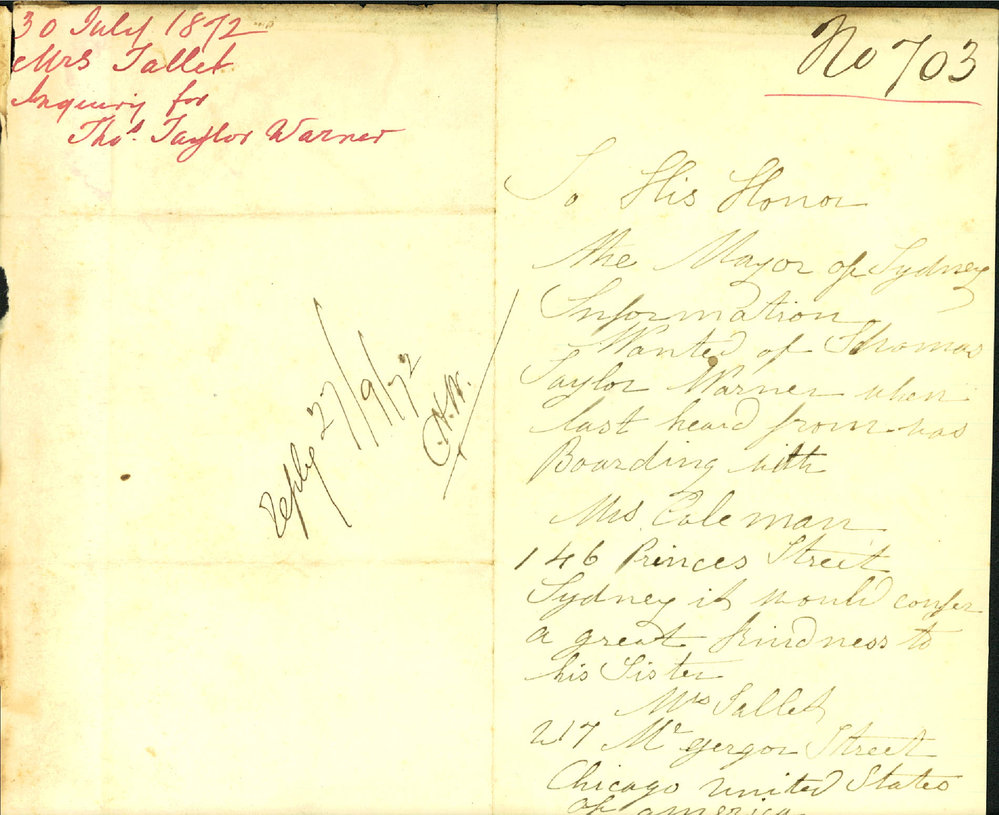 30 July 1872
Mrs Tallet
Inquiry for
Thos. Taylor Warner
Reply 27/9/72
No 703
To His Honor
the Mayor of Sydney
Information
Wanted of Thomas
Taylor Warner when
last heard from was
Boarding with
Mrs. Coleman
146 Princes Street
Sydney it would confer
a great kindness to
his Sister
Mrs Tallet
217 Mc gergor Street
Chicago United States
of america